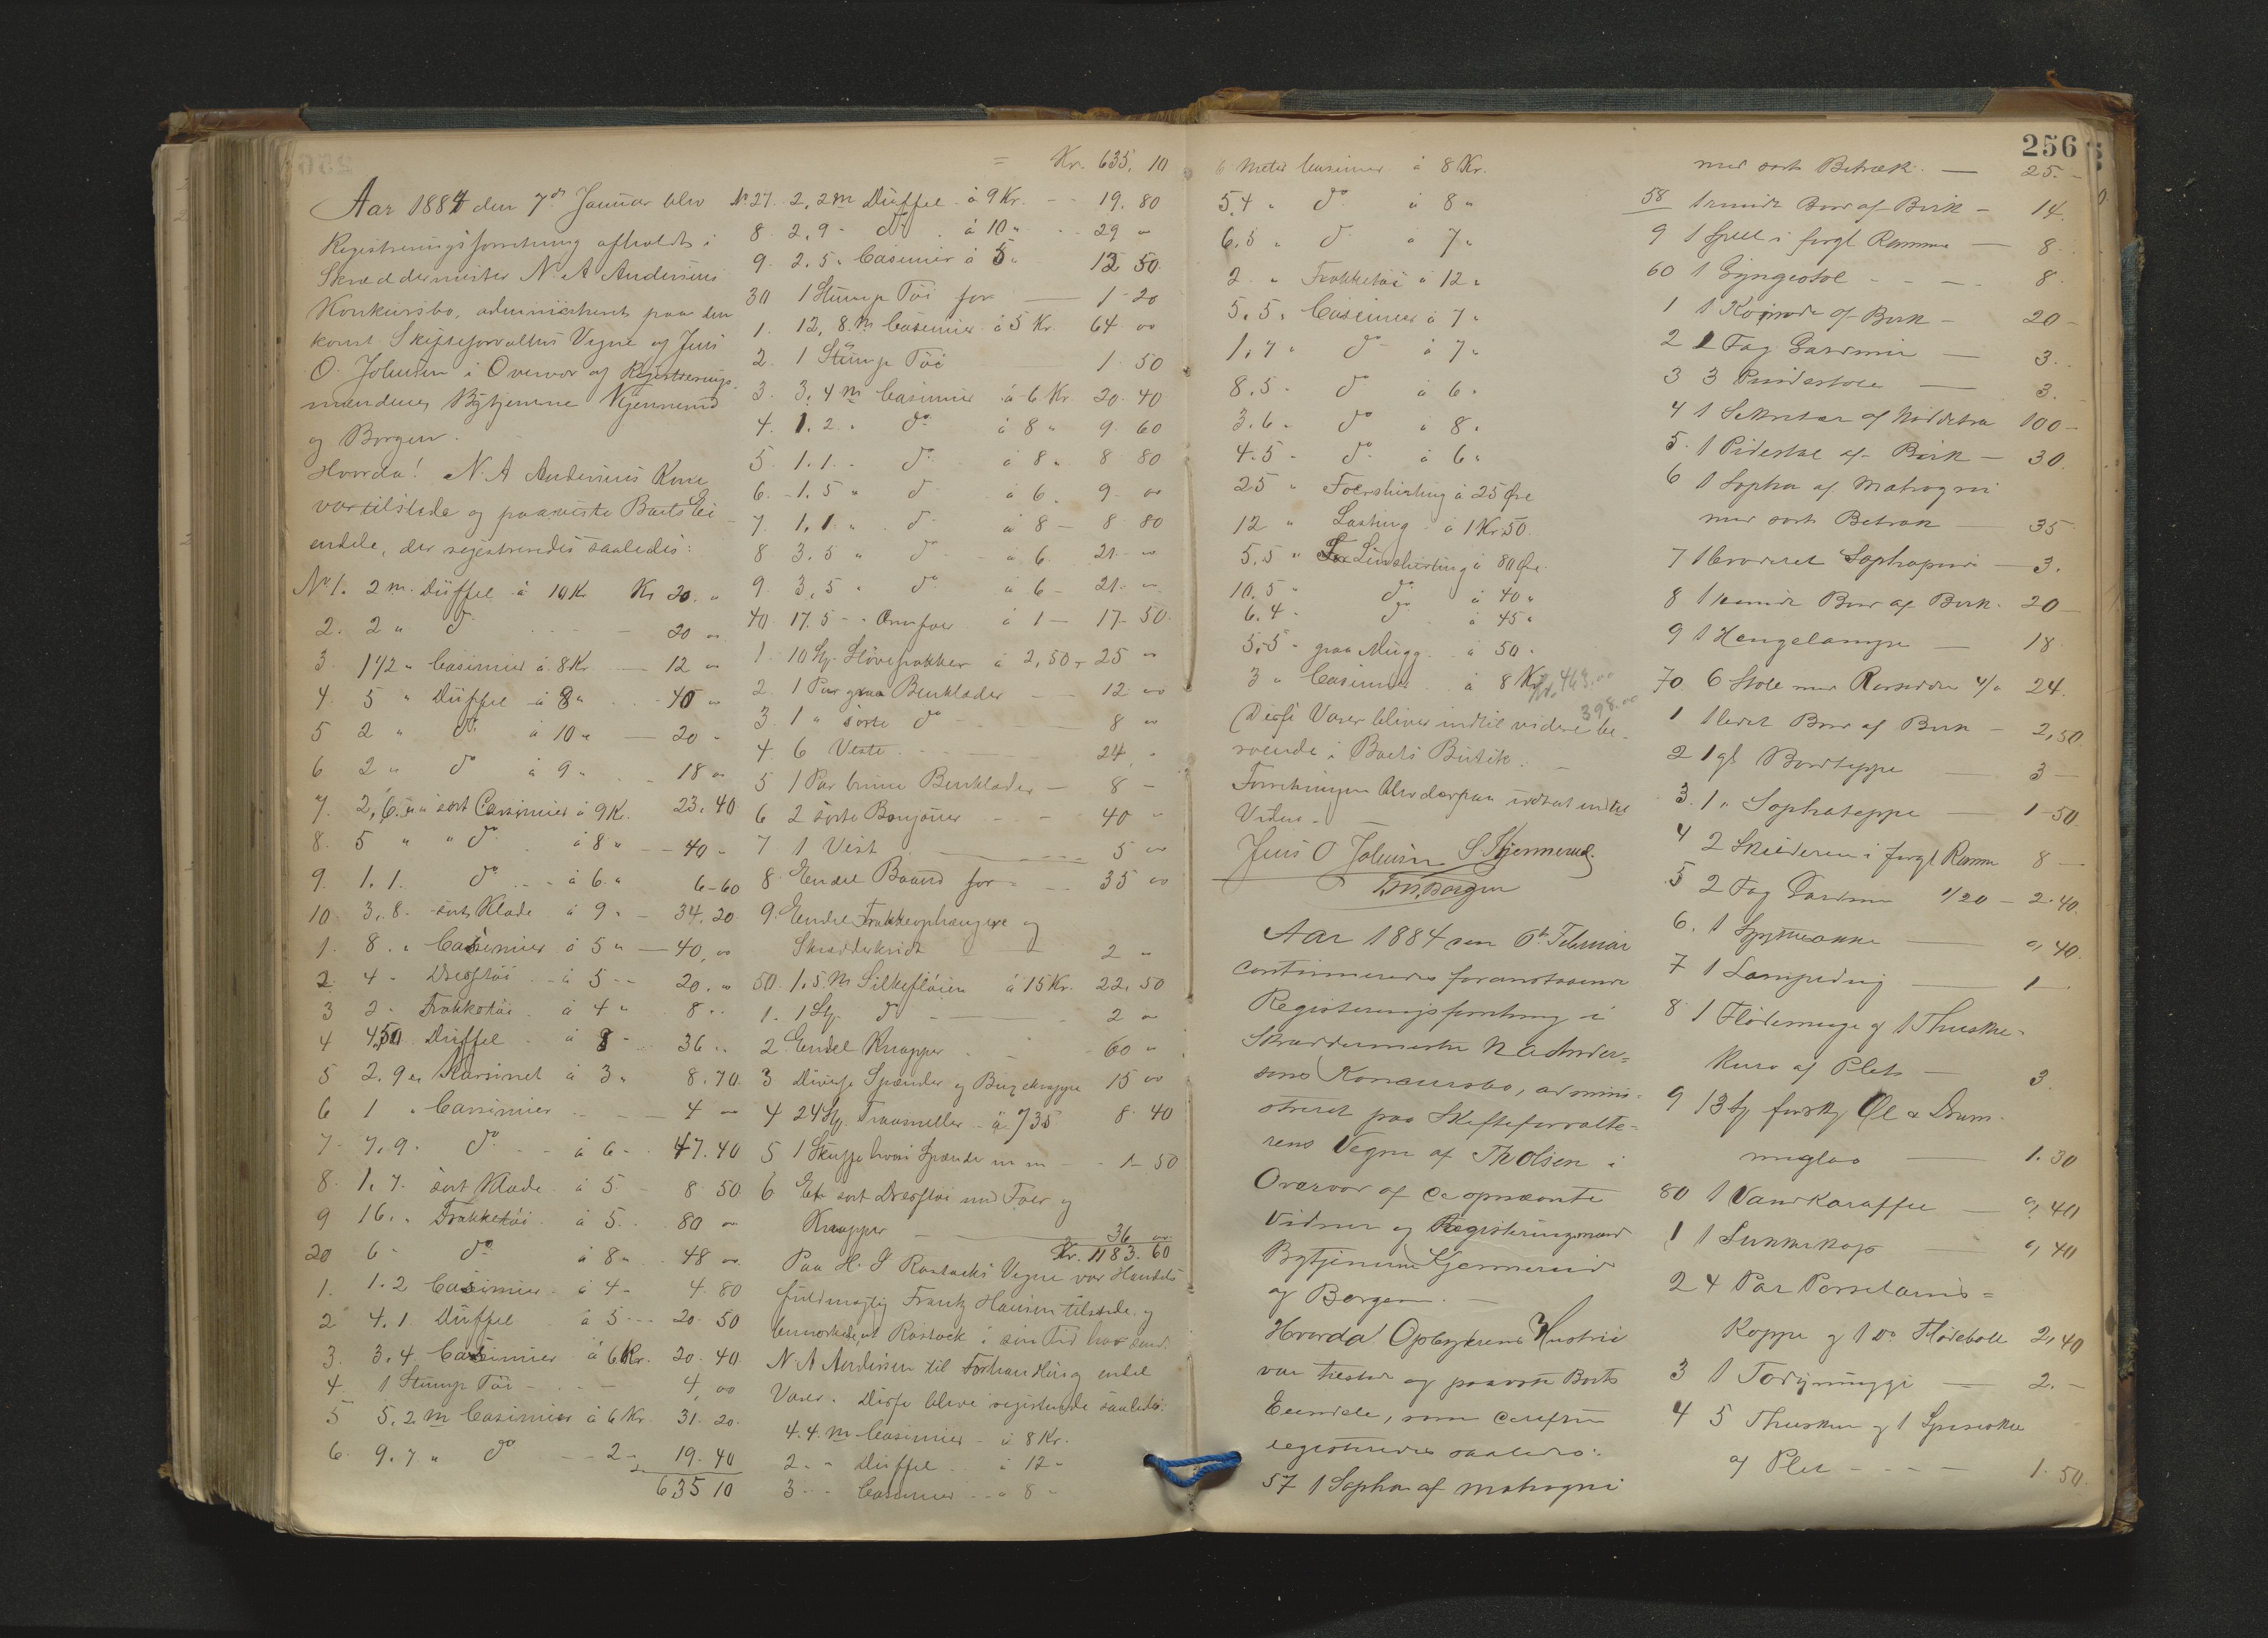 Aar 1884 den 7de Januar blev
Registreringsforretning afholdt i
Skræddermester N. A Andersens
Konkursbo, administreret paa den
konst. Skifteforvalters Vegne af Jens
O. Johnsen i Overvær af Registrerings-
mændene Bytjenerne Kjennerud
og Borgen.
Hvorda! N. A Andersens Kone
var tilstede og paaviste Boets Ei-
endele, der registreredes saaledes:
No 1. 2 m. Düffel à 10 Kr Kr 20. "
2. 2 " do - 20 "
3. 1 1/2 " Casimier à 8 Kr — 12 "
4. 5 " Düffel à 8 " - 40 "
5 2 " do à 10 " — 20 "
6 2 " do à 9 " 18 "
7. 2,6 " sort Cassimier à 9 Kr. 23.40
8. 5 " " do à 8 " - 40 -
9. 1.1. do à 6. " 6-60
10 3.8. sort Klæde à 9 " 34.20
1. 8. " Casimier à 5 " — 40,00
2 4 " Dresstøi à 5 - 20. "
3 2 " Frakketøi à 4 " 8 "
4 4,50 Düffel à 8 - 36 "
5 2.9 " Karsinet à 3 " 8.70
6 1 " Cassimier — 4 "
7 7,9 " do à 6 - 47.40
8. 1.7. sort Klæde à 5 - 8 50
9 16. " Frakketøi à 5. 80 "
20 6 - do à 8 " 48 "
1. 1.2 Casimier à 4 - 4.80
2 4.1 Düffel à 5 - 20 50
3. 3.4 Casimier à 6 Kr. 20.40
4. 1 Stump Tøi - 4,00
5 5.2 m Casimier à 6 Kr. 31.20
6. 9.7 " do - 2 - 19.40
635 10
= Kr. 635.10
No 27. 2,2 m Düffel à 9 Kr. - 19.80
8. 2,9 - do à 10 " 29 "
9. 2.5 " Casimier à 5 " 12 50
30 1 Stump Tøi for — 1-20
1. 12,8 m Casimier à 5 Kr. 64 00
2. 1 Stump Tøi 1.50
3. 3.4 m Casimier à 6 Kr 20.40
4. 1.2 " do à 8 " 9.60
5. 1.1 - do à 8 " 8 80
6. 1.5 " do à 6 " 9 00
7. 1,1 " do à 8 - 8 80
8 3.5 " do à 6 21 "
9. 3,5 " do à 6 - 21 "
40. 17.5 - Ærmfoer à 1 — 17-50
1. 10 St. Støvefrakker à 2,50 - 25 "
2. 1 Par graa Benklæder — 12 00
3. 1 " sorte do 8 "
4. 6 Veste 24 "
5 1 Par brune Benklæder — 8 -
6 2 sorte Bonjourer 40 "
7 1 Vest 5 "
8. Endel Baand for - 35 "
9. Endel Frakkeophængere og
Skrædderkridt 2 "
50. 1.5 m Silkefløien à 15 Kr. 22.50
1. 1 St. do 2 "
2. Endel Knapper 60 "
3 Diverse Spænder og Buxeknapper 15 00
4 24 St. Traasneller à 35 8.40
5 1 Skuffe hvori Spænder m m - 1-50
6 Et sort Dresstøi med Foer og
Knapper 36 "
Kr. 1183.60
Paa H. J Rostocks Vegne var Handels-
fuldmægtig Frantz Hansen tilstede og
bemærkede, at Rostock i sin Tid har send.
N A Andersen til Forhandling endel
Varer. Disse bleve registrerede saaledes.
4.4. m Casimier - à 8 Kr.
2 " Düffel à 12 -
3 - Casimier à 8 -
6 Meter Casimier à 8 Kr.
5,4 " do à 8 "
6.5 " do à 7 "
2 " Frakketøi à 12 "
5.5. Casimier à 7 "
1,7 " do à 7 "
8.5 - do à 6 "
3.6 - do à 8 "
4.5 - do à 6 "
25 " Foershirting à 25 Øre
12 " Lasting à 1 Kr. 50
5,5 " Linshirting à 80 Øre
10,5 " do à 40 "
6.4 - do à 45 "
5,5 - graa Mugg à 50 "
3 " Casimier à 8 Kr
Kr. 463.00
398.00
Disse Varer bliver indtil videre be-
roende i Boets Butik.
Forretningen blev derpaa udsat indtil
Videre.
Jens O Johnsen S. Kjennerud.
Borgen
Aar 1884 den 6te Februar
continueredes foranstaaende
Registreringsforretning i
Skræddermester N A Ander=
sens Konkursbo, admini-
streret paa Skifteforvalte-
rens Vegne af Th Olsen i
Overvær af de opnævnte
Vidner og Registreringsmænd
Bytjenerne Kjennerud
og Borgen.
Hvorda! Opbyderens Hustru
var tilstede og paaviste Boets
Eiendele, som derefter
registreredes saaledes:
57 1 Sopha af mahogni
256
med sort Betræk — 25.-
58 1 rundt Bord af Birk - 14.
9 1 Speil i forgl Ramme — 8.
60 1 Gyngestol - - - 8.
1 1 Komode af Birk - 20 -
2 1 Fag Gardiner — 3.
3 3 Pindestole — 3.
4 1 Sekretær af Nøddetræ 100 -
5. 1 Pidestal af Birk — 30.
6 1 Sopha af Mahogni
med sort Betræk — 35
7 1 broderet Sophapude — 3.
8 1 rundt Bord af Birk. 20 —
9 1 Hengelampe — 18
70. 6 Stole med Rørsæder 4/" 24.
1 1 lidet Bord af Birk - 2,50
2 1 gl Bordteppe 3 —
3. 1 " Sophateppe — 1-50
4 2 Skilderier i forgl Ramme 8 —
5 2 Fag Gardiner 1/20 - 2.40.
6. 1 Spyttebakke — ",40.
7 1 Lampedug — 1 —
8 1 Flødemugge og 1 Theskee-
kurv af Plet — 3.
9 13 St forskj Øl & Dram-
meglas — 1.30
80 1 Vandkaraffel — ",40
1 1 Sukkerkop ",40
2 4 Par Porselains=
Kopper og 1 do Flødebolle 2,40
3 1 — 2.-
4 5 Theskeer og 1 Spiseskee
af Plet - - - 1.50